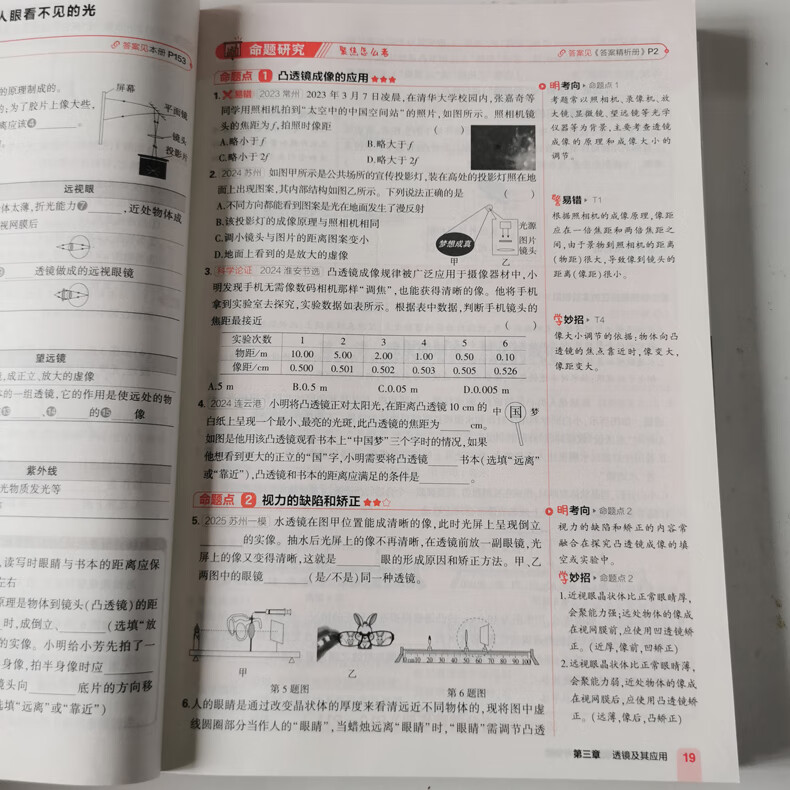 人眼看不见的光
答案见本册P153
的原理制成的。
的;为了胶片上像大些,
离应该④
屏幕
平面镜
镜头
投影片
远视眼
体太薄,折光能力⑦ ,近处物体成
视网膜后
透镜做成的远视眼镜
望远镜
,成正立、放大的虚像
的一组透镜,它的作用是使远处的物
⑬ 、⑭ 的⑮ 像
紫外线
光物质发光等
,读写时眼睛与书本的距离应保
左右
原理是物体到镜头(凸透镜)的距
时,成倒立、 (选填“放
的实像。小明给小芳先拍了一
身像,拍半身像时应
镜头向 底片的方向移
选填“远离”或“靠近”)
命题研究 聚焦怎么考
答案见《答案精析册》P2
命题点 1 凸透镜成像的应用 ★★★
1. 易错 2023 常州 2023 年 3 月 7 日凌晨,在清华大学校园内,张嘉奇等
同学用照相机拍到“太空中的中国空间站”的照片,如图所示。照相机镜
头的焦距为f,拍照时像距 ( )
A.略小于f B.略大于f
C.略小于2f D.略大于2f
2. 2024 苏州 如图甲所示是公共场所的宣传投影灯,装在高处的投影灯照在地
面上出现图案,其内部结构如图乙所示。下列说法正确的是 ( )
A.不同方向都能看到图案是光在地面发生了漫反射
B.该投影灯的成像原理与照相机相同
C.调小镜头与图片的距离图案变小
D.地面上看到的是放大的虚像
梦想成真
甲
光源
图片
镜头
乙
3. 科学论证 2024 淮安节选 凸透镜成像规律被广泛应用于摄像器材中,小
明发现手机无需像数码相机那样“调焦”,也能获得清晰的像。他将手机
拿到实验室去探究,实验数据如表所示。根据表中数据,判断手机镜头的
焦距最接近 ( )
实验次数 1 2 3 4 5 6
物距/m 10.00 5.00 2.00 1.00 0.50 0.10
像距/cm 0.500 0.501 0.502 0.503 0.505 0.526
A.5 m B.0.5 m C.0.05 m D.0.005 m
4. 2024 连云港 小明将凸透镜正对太阳光,在距离凸透镜 10 cm 的
白纸上呈现一个最小、最亮的光斑,此凸透镜的焦距为 cm。
如图是他用该凸透镜观看书本上“中国梦”三个字时的情况,如果
他想看到更大的正立的“国”字,小明需要将凸透镜 书本(选填“远离”
或“靠近”),凸透镜和书本的距离应满足的条件是 。
中 国 梦
命题点 2 视力的缺陷和矫正 ★★☆
5. 2025 苏州一模 水透镜在图甲位置能成清晰的像,此时光屏上呈现倒立
的实像。抽水后光屏上的像不再清晰,在透镜前放一副眼镜,光
屏上的像又变得清晰,这就是 眼的形成原因和矫正方法。甲、乙
两图中的眼镜 (是/不是)同一种透镜。
甲
乙
第 5 题图
0cm 10 20 30 40 50 60 70 80 90 100
第 6 题图
6. 人的眼睛是通过改变晶状体的厚度来看清远近不同物体的,现将图中虚
线圆圈部分当作人的“眼睛”,当蜡烛远离“眼睛”时,“眼睛”需调节凸透
明考向 命题点 1
考题常以照相机、录像机、放
大镜、显微镜、望远镜等光学
仪器等为背景,主要考查透镜
成像的原理和成像大小的
调节。
易错 T1
根据照相机的成像原理,像距
应在一倍焦距和两倍焦距之
间,由于景物到照相机的距离
(物距)很大,导致像到镜头的
距离(像距)很小。
学妙招 T4
像大小调节的依据:物体向凸
透镜的焦点靠近时,像变大,
像距变大。
明考向 命题点 2
视力的缺陷和矫正的内容常
融合在探究凸透镜成像的填
空或实验中。
学妙招 命题点 2
1.近视眼晶状体比正常眼睛厚,
会聚能力强;远处物体的像成
在视网膜前,应使用凹透镜矫
正。(近厚,像前,凹矫正)
2.远视眼晶状体比正常眼睛薄,
会聚能力弱,近处物体的像成
在视网膜后,应使用凸透镜矫
正。(远薄,像后,凸矫正)
第三章 透镜及其应用 19